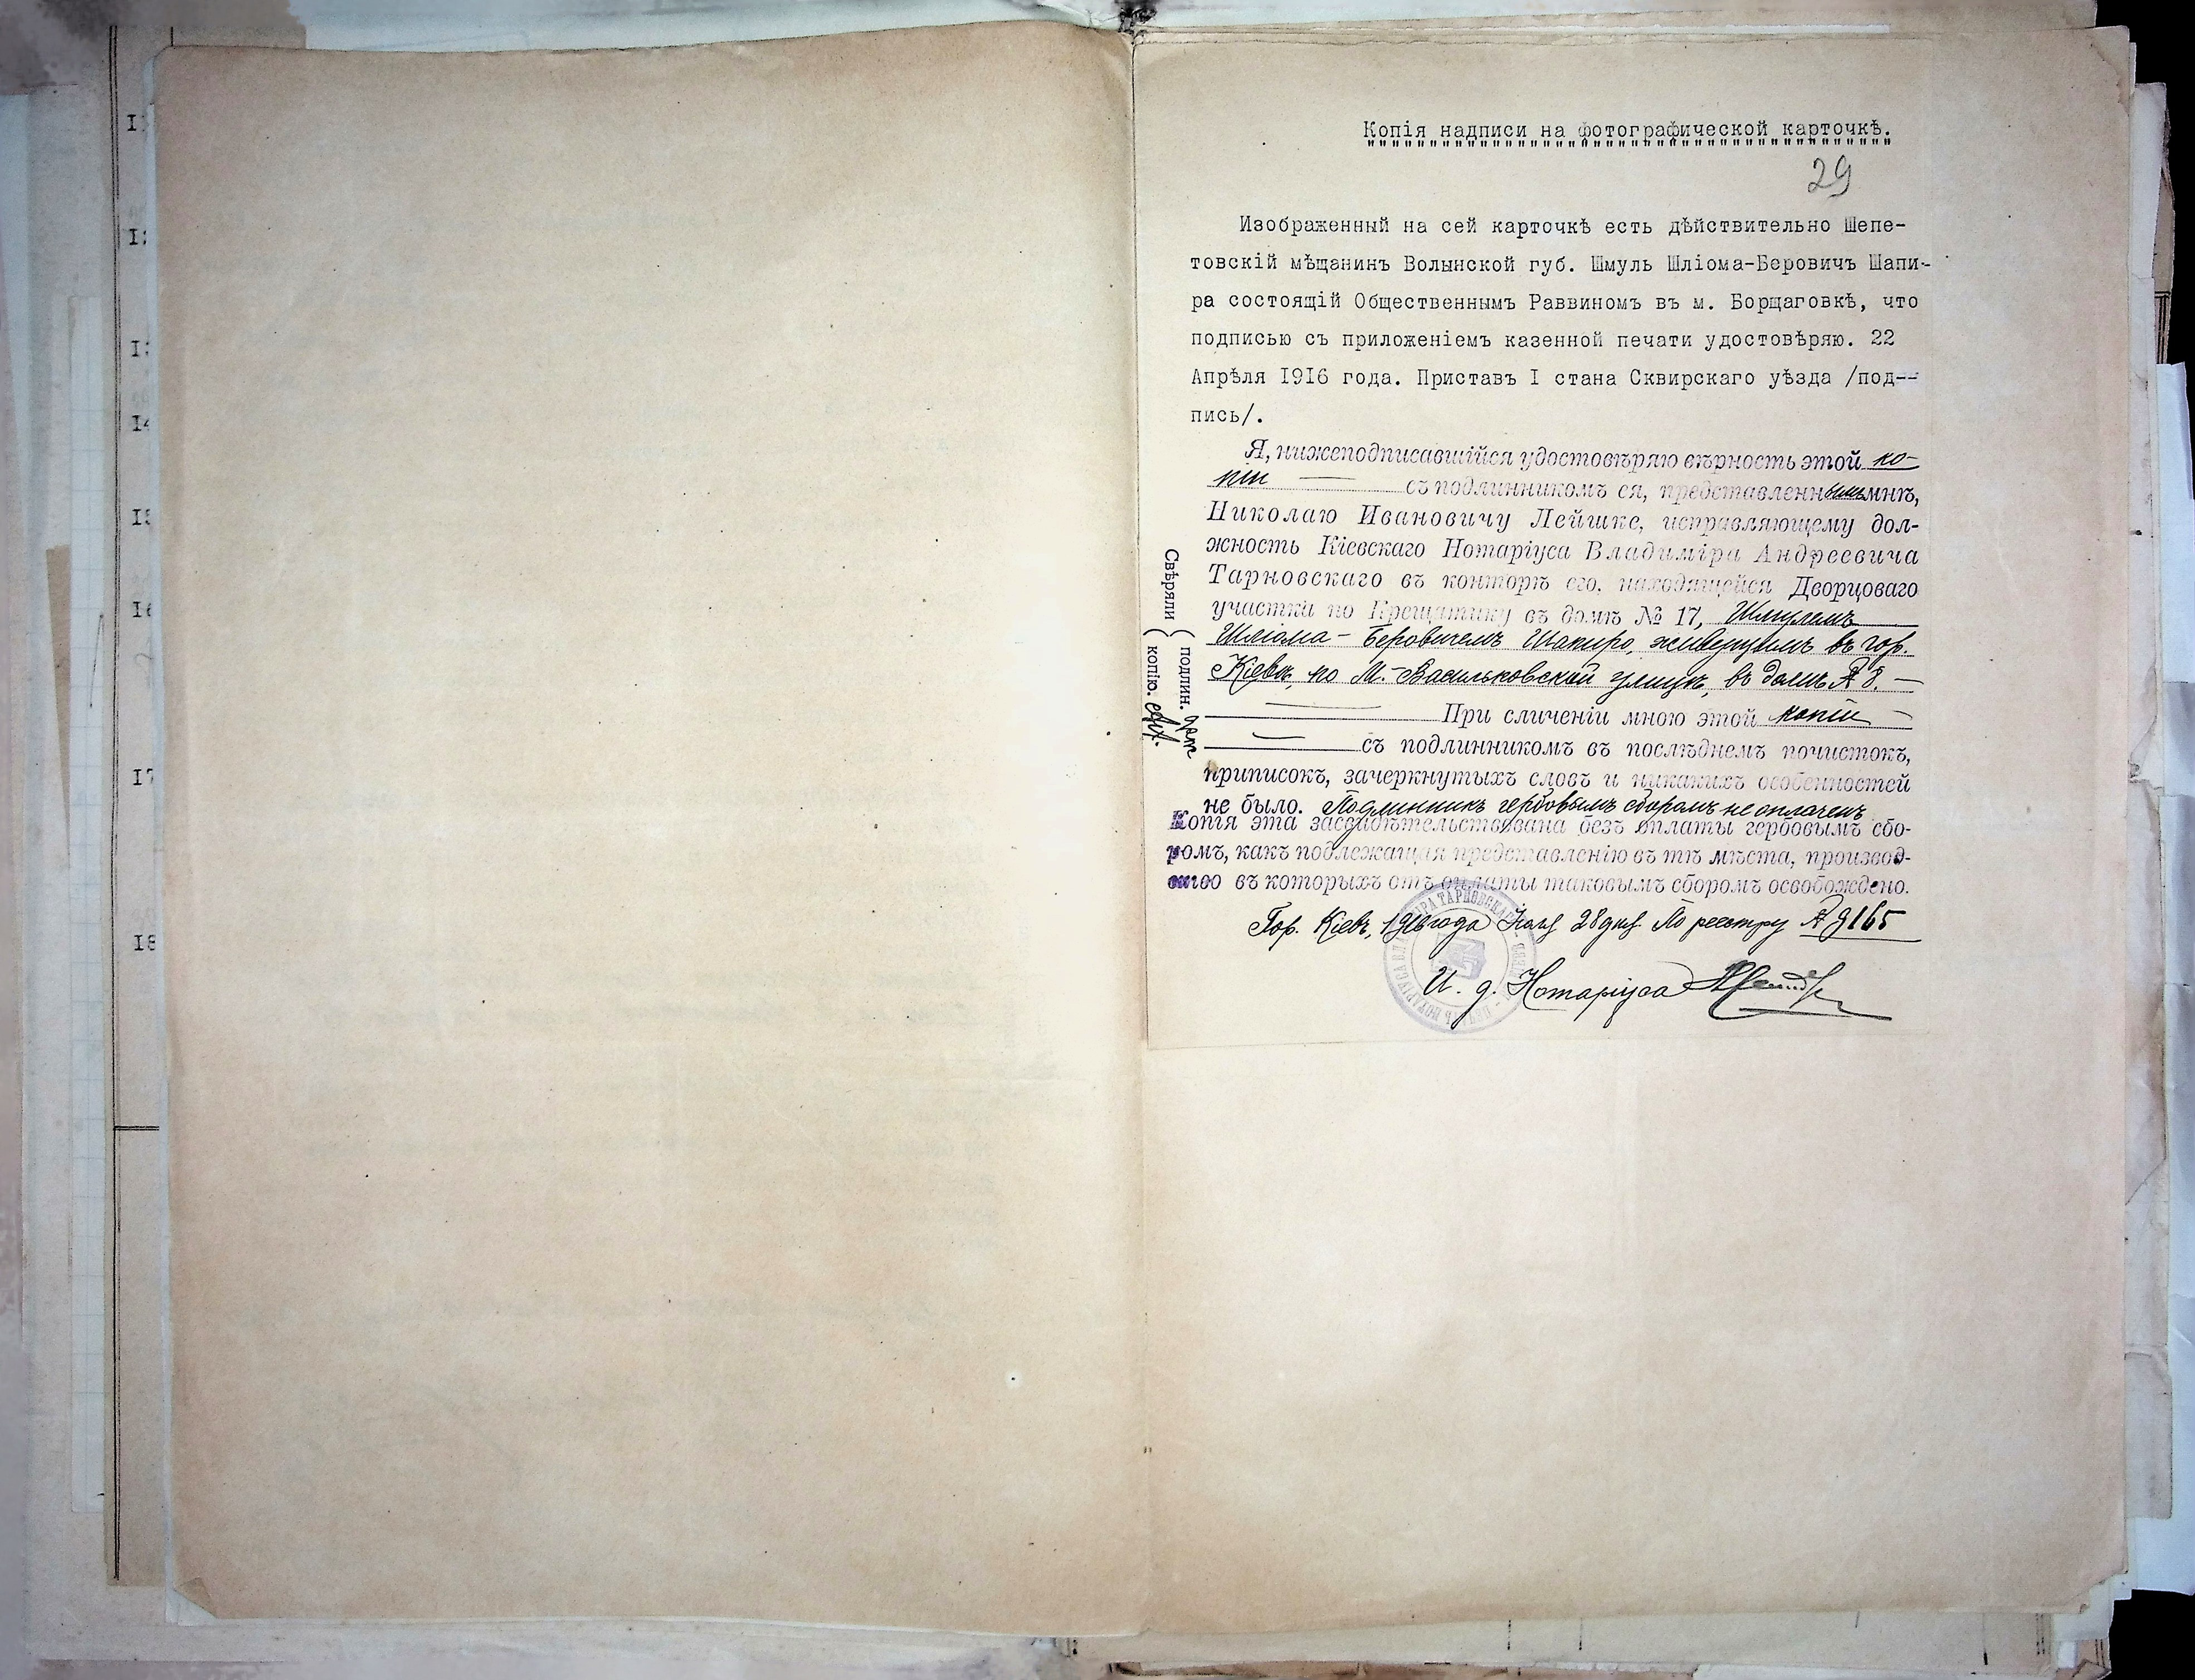 Копія надписи на фотографической карточкѣ.
29
Изображенный на сей карточкѣ есть дѣйствительно Шепе-
товскій мѣщанинъ Волынской губ. Шмуль Шліома-Беровичъ Шапи-
ра состоящій Общественнымъ Раввиномъ въ м. Борщаговкѣ, что
подписью съ приложеніемъ казенной печати удостовѣряю. 22
Апрѣля 1916 года. Приставъ I стана Сквирскаго уѣзда /под--
пись/.
Я, нижеподписавшійся удостовѣряю вѣрность этой ко-
піи съ подлинникомъ ея, представленнымъ мнѣ,
Николаю Ивановичу Лейшке, исправляющему дол-
жность Кіевскаго Нотаріуса Владиміра Андреевича
Тарновскаго въ конторѣ его, находящейся Дворцоваго
участка по Крещатику въ домѣ № 17, Шмулемъ
Шліома-Беровичемъ Шапиро, живущимъ въ гор.
Кіевѣ, по М.-Васильковской улицѣ, въ домѣ № 8.
При сличеніи мною этой копіи
съ подлинникомъ въ послѣднемъ почистокъ,
приписокъ, зачеркнутыхъ словъ и никакихъ особенностей
не было. Подлинникъ гербовымъ сборомъ не оплаченъ
Копія эта засвидѣтельствована безъ оплаты гербовымъ сбо-
ромъ, какъ подлежащая представленію въ тѣ мѣста, производ-
ство въ которыхъ отъ оплаты таковымъ сборомъ освобождено.
Гор. Кіевъ, 1916 года 28 дня По реестру № 9165
И. д. Нотаріуса
Свѣряли
подлин.
копію.
I4
I6
I7
I8